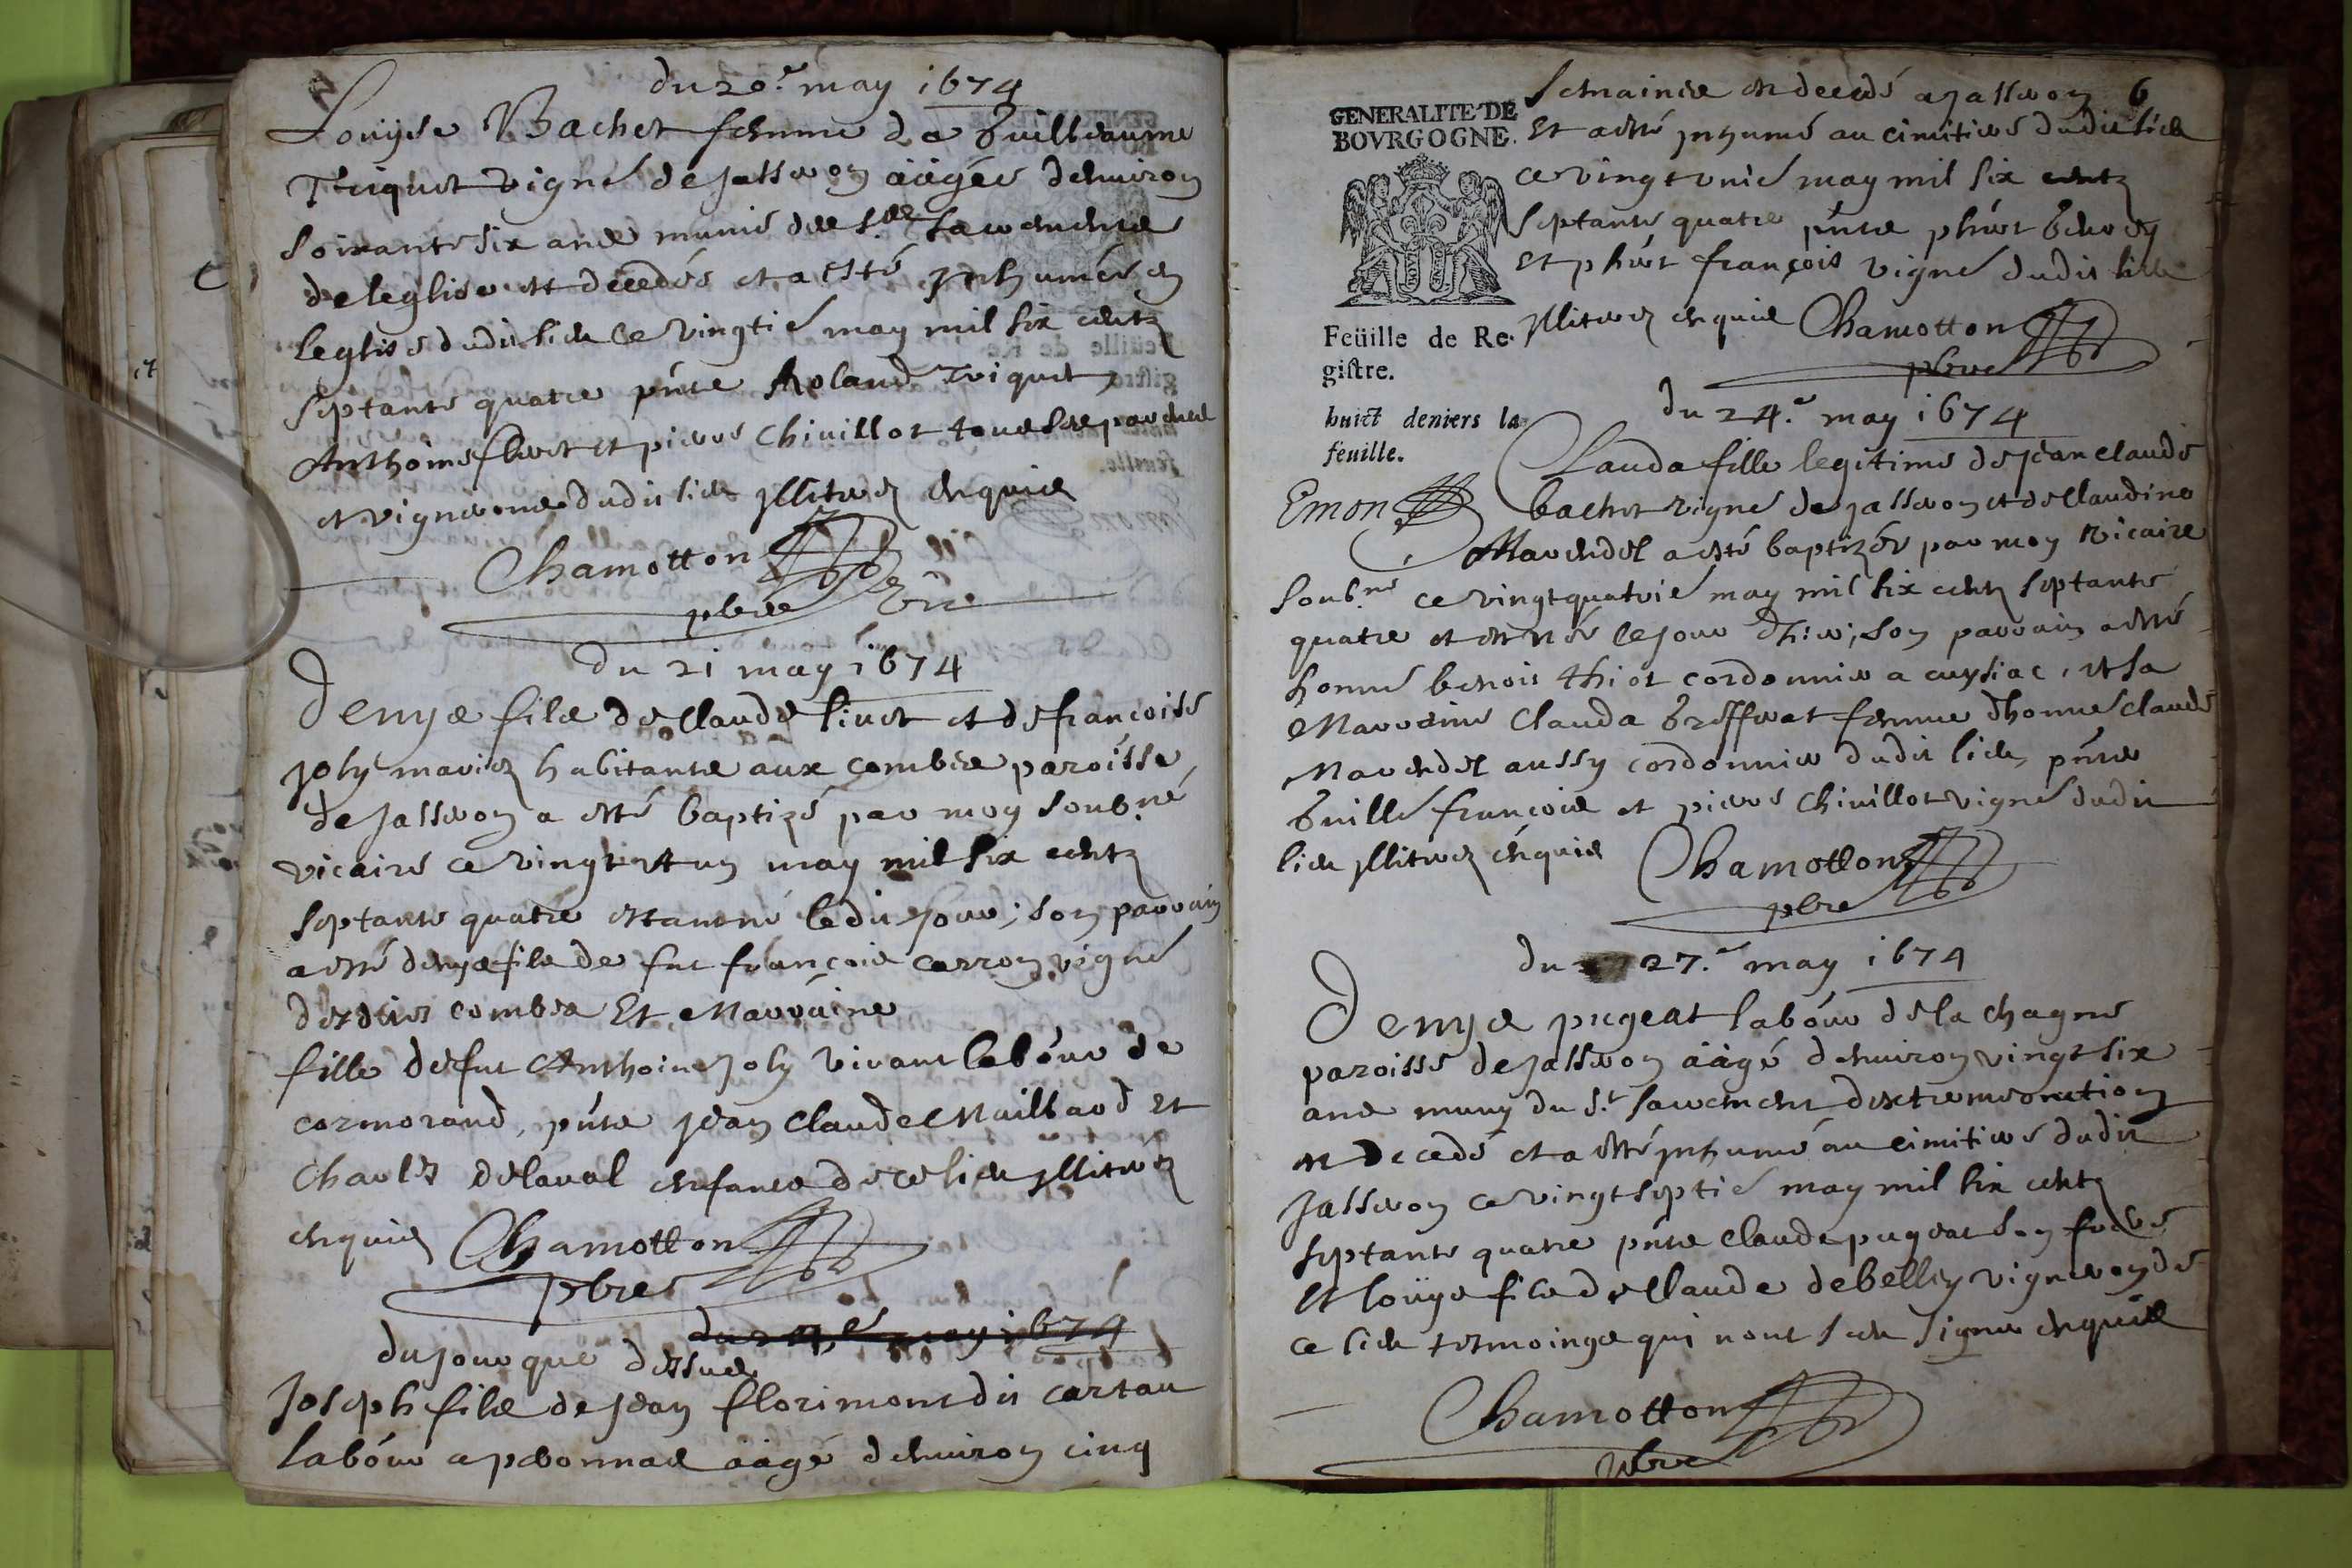 du 20.e may 1674
Louyse Bachet femme de Guilleaume
Triquet vigné de Jasseron ââgée denviron
soixante six ans munie des Sts sacremens
de leglise est decedés et a esté inhumée en
leglise dudit lieu ce vingtié may mil six centz
septante quatre pnts Roland Triquet
Anthoine et pierre Chivillot tous
et vignerons dudit lieu illiterez enquis
Chamotton
pbre Vre
du 21 may 1674
Denys filz de Claude livet et de francoise
Joly mariez habitants aux combes paroisse
de Jasseron a esté baptizé par moy soubné
vicaire ce vingt et un may mil six centz
septante quatre estant né ledit jour; son parrain
a esté denys filz de fut françois carron vigné
desdites combes Et Marraine
fille de fut Anthoine Joly vivant labour de
cormorand, pnts Jean Claude Maillard et
Charles delaval enfants de ce lieu illiterez
enquis Chamotton
pbre
du 24.e may 1674
du jour que dessus
Joseph filz de Jean florimont dit cartau
labour a peronnas ââgé denviron cinq
6
semaines est decedé a Jasseron
Et a esté inhumé au cimitiere dudit lieu
ce vingt unié may mil six centz
septante quatre pnts phert
Et phert françois vigné dudit lieu
illiterez enquis Chamotton
pbre
GENERALITE DE
BOVRGOGNE.
Feüille de Re-
gistre.
huict deniers la
feuille.
Emon
du 24.e may 1674
Clauda fille legitime de Jean claude
bachet vigné de Jasseron et de Claudine
Marendet a esté baptizée par moy vicaire
soub.né ce vingtquatrié may mil six centz septante
quatre et est née le jour d'hier; son parrain a esté
honné benoit thiot cordonnier a cuysiac, et sa
Marraine Clauda femme dhonné claude
Marendet aussy cordonnier dudit lieu, pnts
Guillé françois et pierre Chivillot vigné dudit
lieu illiterez enquis Chamotton
pbre
du 27.e may 1674
Denys pugeat labour de la chagne
paroisse de Jasseron ââgé denviron vingt six
ans muny du St sacrement dextreme onction
est decedé et a esté inhumé au cimitiere dudit
Jasseron ce vingt septié may mil six centz
septante quatre pnts Claude pugeat son frere
Et loüys filz de Claude debelley vigneron de
ce lieu tesmoings qui nont sceu signer enquis
Chamotton
pbre